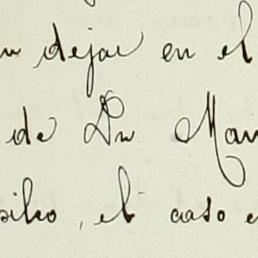 dejar en el
de Dn Man
el caso e